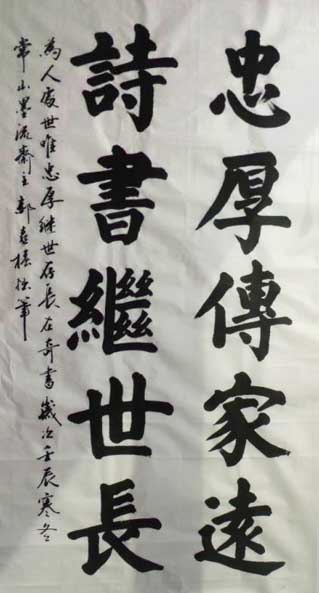 忠厚傳家遠
詩書繼世長
為人處世唯忠厚繼世存長在奇書歲次壬辰寒冬
常山墨流齋主郭
筆